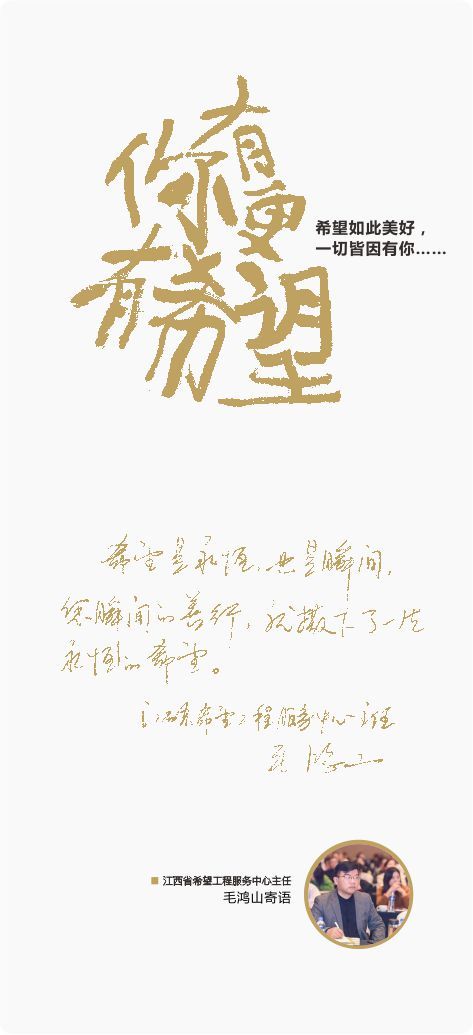 有你更
有希望
希望如此美好，
一切皆因有你……
希望是永恒，也是瞬间，
您瞬间的善行，就撒下了一片
永恒的希望。
江西省希望工程服务中心主任
毛鸿山
江西省希望工程服务中心主任
毛鸿山寄语